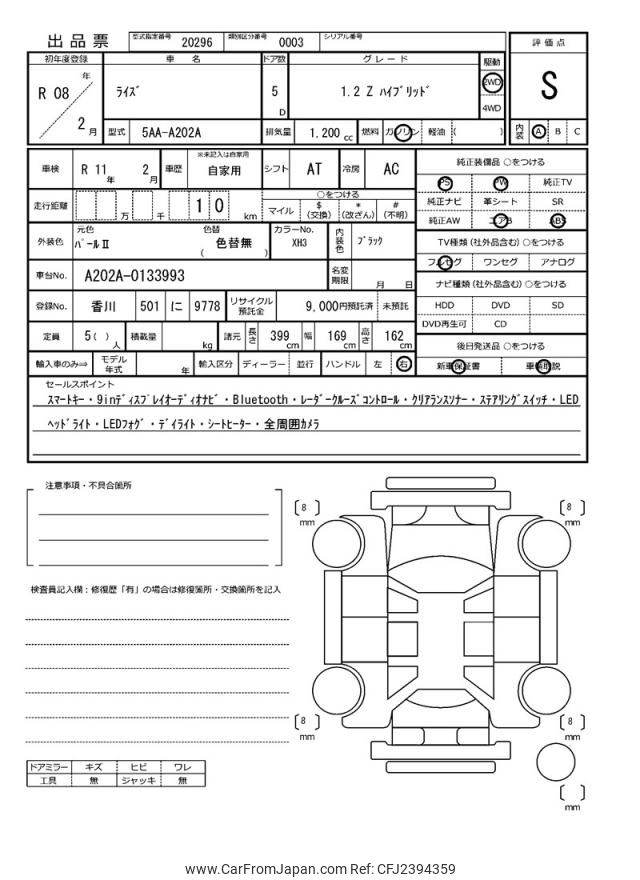 出品票 型式指定番号 20296 類別区分番号 0003 シリアル番号
初年度登録 車名 ドア数 グレード 駆動 評価点
R 08 年 2 月 ライズ 5 D 1.2 Z ハイブリッド 2WD 4WD S
型式 5AA-A202A 排気量 1,200 cc 燃料 ガソリン 軽油 ( ) 内装 A B C
車検 R 11 年 2 月 車歴 ※未記入は自家用 自家用 シフト AT 冷房 AC 純正装備品 ○をつける
PS PW 純正TV
走行距離 万 千 1 0 km ○をつける 純正ナビ 革シート SR
マイル $ (交換) * (改ざん) # (不明) 純正AW エアB ABS
外装色 元色 パールⅡ 色替 色替無 ( ) カラーNo. XH3 内装色 ブラック TV種類 (社外品含む) ○をつける
フルセグ ワンセグ アナログ
車台No. A202A-0133993 名変期限 月 日 ナビ種類 (社外品含む) ○をつける
登録No. 香川 501 に 9778 リサイクル預託金 9,000円預託済 未預託 HDD DVD SD
DVD再生可 CD
定員 5 ( ) 人 積載量 kg 諸元 長さ 399 cm 幅 169 cm 高さ 162 cm 後日発送品 ○をつける
輸入車のみ⇒ モデル年式 年 輸入区分 ディーラー 並行 ハンドル 左 右 新車保証書 車輌取説
セールスポイント
スマートキー・9inディスプレイオーディオナビ・Bluetooth・レーダークルーズコントロール・クリアランスソナー・ステアリングスイッチ・LED
ヘッドライト・LEDフォグ・デイライト・シートヒーター・全周囲カメラ
注意事項・不具合箇所
[ 8 ] mm [ 8 ] mm
検査員記入欄：修復歴「有」の場合は修復箇所・交換箇所を記入
[ 8 ] mm [ 8 ] mm
ドアミラー キズ ヒビ ワレ
工具 無 ジャッキ 無
[ ] mm
www.CarFromJapan.com Ref: CFJ2394359